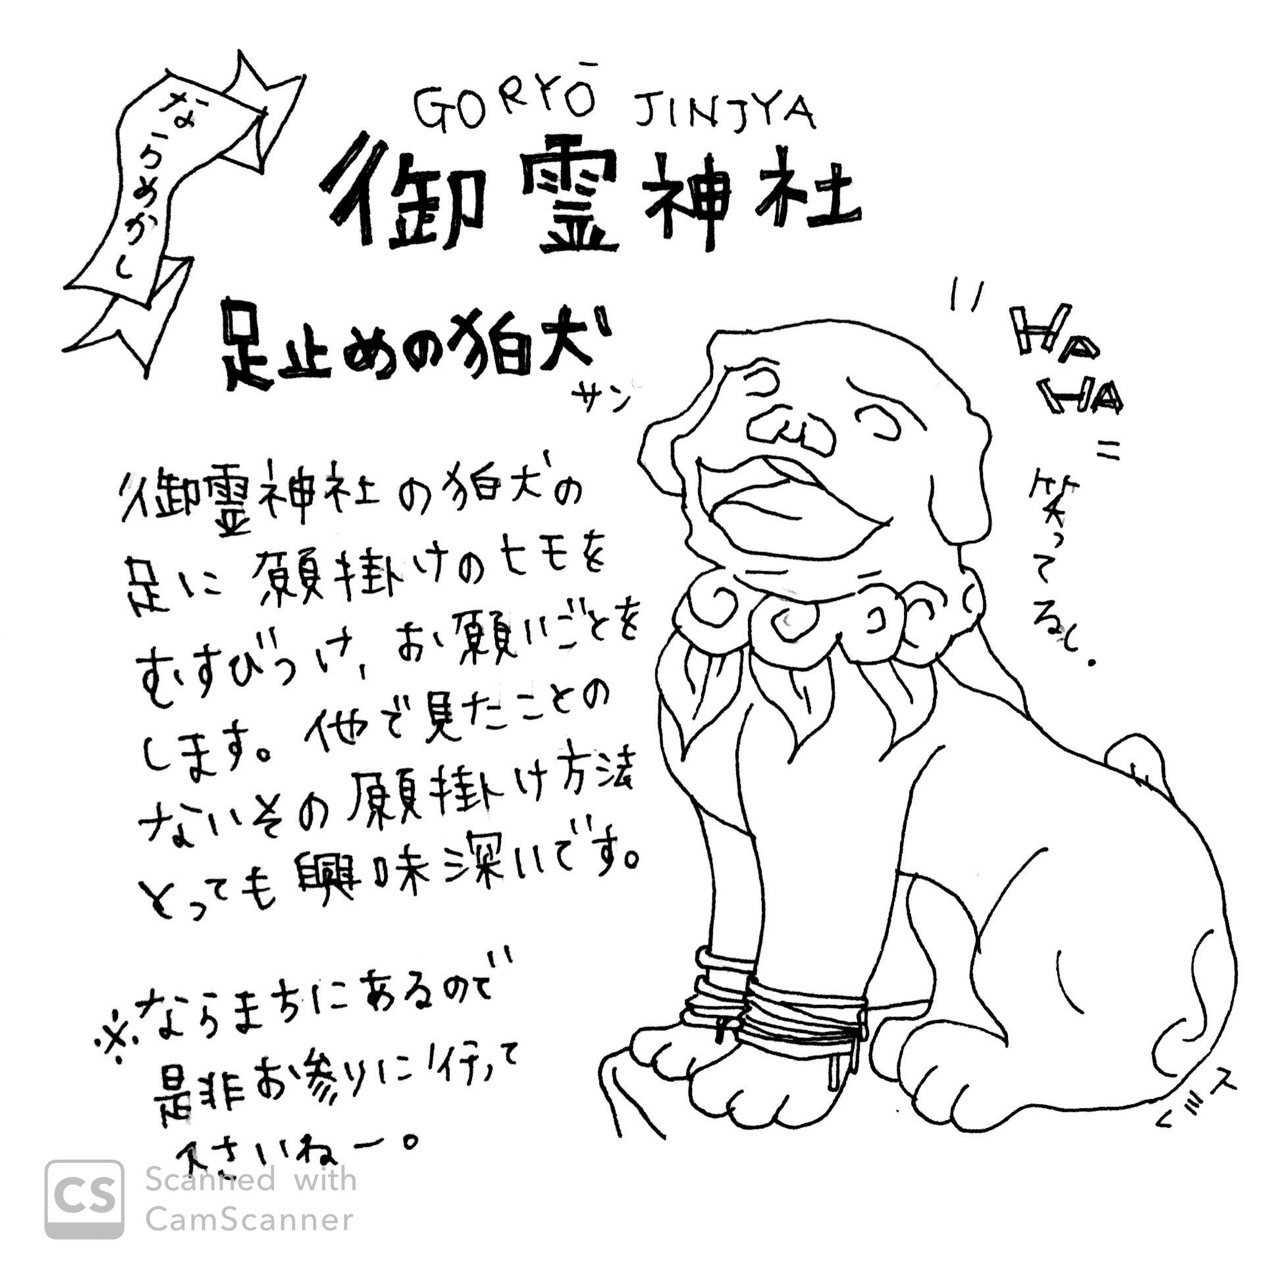 ならめかし
GORYŌ JINJYA
御霊神社
足止めの狛犬
サン
HA
HA
笑ってるし.
御霊神社の狛犬の
足に願掛けのヒモを
むすびつけ、お願いごとを
します。他で見たことの
ないその願掛け方法
とっても興味深いです。
※ならまちにあるので
是非お参りに行って
下さいねー。
Scanned with
CS
CamScanner